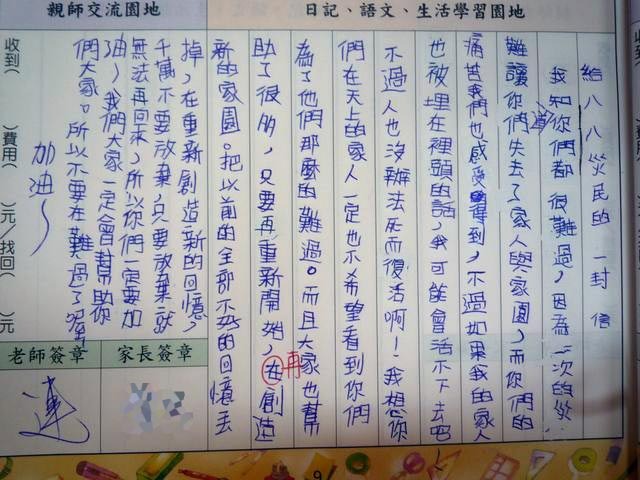 親師交流園地
日記、語文、生活學習園地
給八八災民的一封信
我知道你們都很難過，因為一次的災
難讓你們失去了家人與家園，而你們的
痛苦我們也感受得到，不過如果我的家人
也被埋在裡頭的話，我可能會活不下去吧！
不過人也沒辦法死而復活啊！我想你
們在天上的家人一定也不希望看到你們
為了他們那麼的難過。而且大家也幫
助了很多，只要再重新開始，在創造
再
新的家園。把以前的全部不好的回憶丟
掉，在重新創造新的回憶，
千萬不要放棄，只要放棄就
無法再回來，所以你們一定要加
油，我們大家一定會幫助你
們大家。所以不要在難過了喔
加油～
收到( )費用( )元/找回( )元
老師簽章
家長簽章
連
9